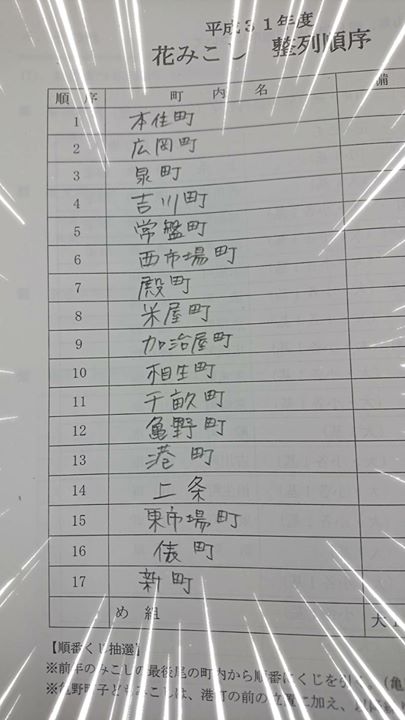 平成31年度
花みこし 整列順序
順 序 町 内 名 備
1 本住町
2 広岡町
3 泉町
4 吉川町
5 常盤町
6 西市場町
7 殿町
8 米屋町
9 加治屋町
10 相生町
11 千畝町
12 亀野町
13 港町
14 上条
15 東市場町
16 俵町
17 新町
め 組 大1
【順番くじ抽選】
※前年のみこしの最後尾の町内から順番にくじを引く。(亀
※亀野町子どもみこしは、港町の前の位置に加え、以降